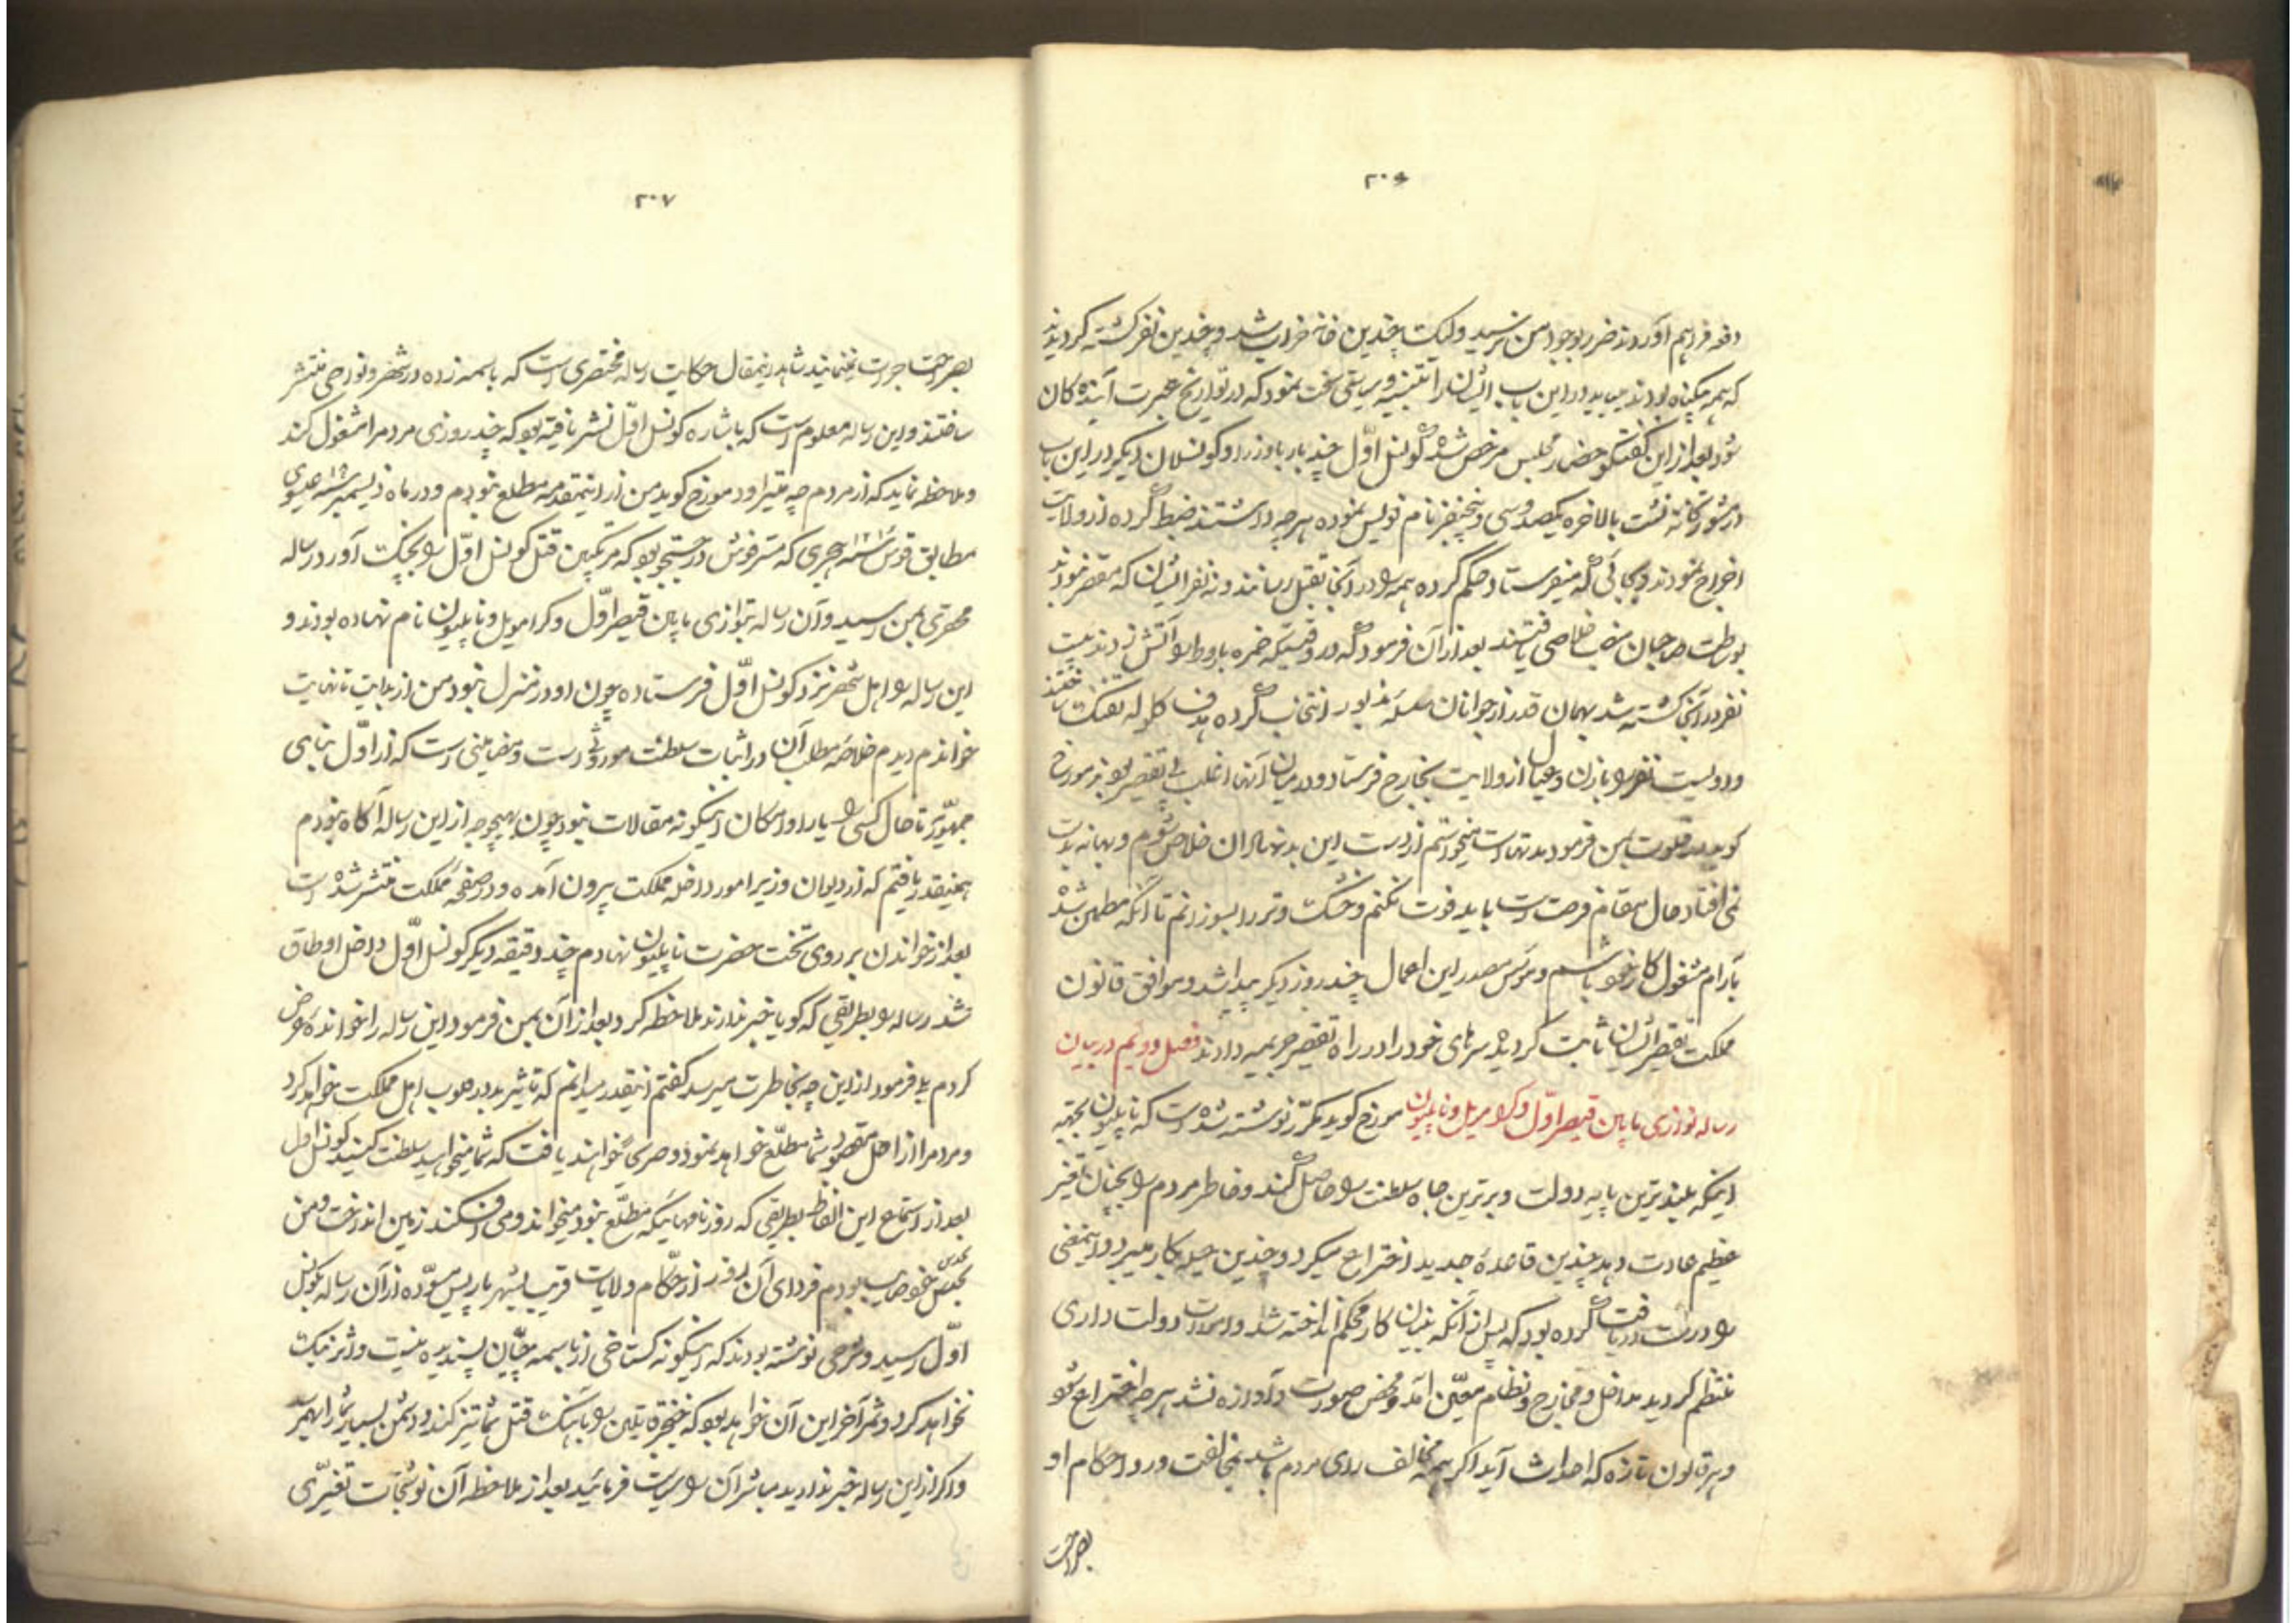 ۲۰۶
دفعه فراهم آوردند ضرر بوجود من نرسید ولیکن چندین خانه خراب شد و چندین نفر کشته گردیدند
که همه بیگناه بودند میباید در این باب ایشان را تنبیه و سیاستی سخت نمود که در تواریخ عبرت آینده کان
شود بعد از این گفتگو حضار مجلس مرخص شده کونسل اوّل چند بار با وزرا و کونسلان دیگر در این باب
در مشورتخانه نشست بالاخره یکصد و سی و پنجنفر نام نویس نموده هر چه داشتند ضبط کرده از ولایت
اخراج نمودند و بجائی که میفرستاد حکم کرده همه را در آنجا بقتل رسانند و نه نفر ایشان که مقصر نبودند
بوساطت صاحبان منصب خلاصی یافتند بعد از آن فرمود که در وقتیکه خمره باروط را آتش زدند بیست
نفر در آنجا کشته شد بهمان قدر از جوانان سلسله مذبور انتخاب کرده هدف گلوله تفنگ ساختند
و دویست نفر را با زن و عیال از ولایت بخارج فرستاد و در میان آنها اغلب بی تقصیر بودند مورخ
گوید در خلوت بمن فرمود مدتهاست میخواستم از دست این بدنهادان خلاص شوم و بهانه بدست
نمی افتاد حال مقام فرصت است باید فوت نکنم و خشک و تر را بسوزانم تا آنکه مطمئن شده
بآرام مشغول کار خود باشم و مؤسس مصدر این اعمال چند روز دیگر پیدا شد و موافق قانون
مملکت تقصیر ایشان ثابت گردیده سرهای خود را در راه تقصیر جریمه دادند فصل دویم در بیان
رساله توازی ما باین قیصر اوّل و کرامویل و ناپلیون مورخ گوید مکرّر نوشته شده است که ناپلیون بجهة
اینکه بلندترین پایه دولت و برترین جاه سلطنت را حاصل کند و خاطر مردم را بچنان تغیر
عظیم عادت دهد چندین قاعدهٔ جدید اختراع میکرد و چندین حیله بکار میبرد و اینمعنی
را درست دریافت کرده بود که پس از آنکه بنیان کار محکم انداخته شد و اساس دولت داری
منتظم گردید مداخل و مخارج و نظام معیّن آمد و محض صورت و آوازه نشد هر چه اختراع شود
و هر قانون تازه که احداث آید اگر همه مخالف رای مردم باشد بمخالفت و رد احکام او
بصراحت
۲۰۷
بصراحت جرئت نمینمایند شاهد اینمقال حکایت رساله مختصری است که باسمه زده در شهر و نواحی منتشر
ساختند و این رساله معلوم است که باشاره کونسل اوّل نشر یافته بود که چند روزی مردم را مشغول کند
و ملاحظه نماید که از مردم چه میتراود مورخ گوید من از اینمقدمه مطلع نبودم و در ماه دیسمبر سنه ۱۸۰۰ عیسوی
مطابق قوس سنه ۱۲۱۵ هجری که مستر فوش در جستجو بود که مرتکبین قتل کونسل اوّل را بچنگ آورد رساله
مختصری بمن رسید و آن رساله توازی ما باین قیصر اوّل و کرامویل و ناپلیون نام نهاده بودند و
این رساله را اهل شهر نزد کونسل اوّل فرستاده چون او در منزل نبود من از بدایت تا نهایت
خواندم دیدم خلاصه مطلب آن در اثبات سلطنت موروثی است و مضامینی است که از اوّل بنای
جمهوریّه تا حال کسی را یارا و امکان اینگونه مقالات نبود چون بهیچوجه از این رساله آگاه نبودم
همینقدر یافتم که از دیوان وزیر امور داخل مملکت بیرون آمده و در صفحه مملکت منتشر شده است
بعد از خواندن بر روی تخت حضرت ناپلیون نهادم چند دقیقه دیگر کونسل اوّل داخل اوطاق
شد رساله را بطریقی که گویا خبر ندارد ملاحظه کرد بعد از آن بمن فرمود این رساله را خوانده عرض
کردم بلی فرمود از این چه بخاطرت میرسد گفتم اینقدر میدانم که تاثیر بد در قلوب اهل مملکت خواهد کرد
و مردم را از اصل مقصود شما مطلّع خواهد نمود و صریح خواهند یافت که شما میخواهید سلطنت کنید کونسل اوّل
بعد از استماع این الفاظ بطریقی که روزنامهائیکه مطّلع نبود میخواند و می افکند زمین انداخت و من
بحدس خود صایب بودم فردای آن روز از حکّام ولایات قریب بشهر پاریس مسوّده از آن رساله بکونسل
اوّل رسید و شرحی نوشته بودند که اینگونه گستاخی از باسمه چیان پسندیده نیست و اثر نیک
نخواهد کرد و ثمر آخر این آن خواهد بود که خنجر قاتلین را باهنگ قتل شما تیز کند و دشمن بسیار شما را بهم رسد
و اگر از این رساله خبر ندارید مباشر آن را سیاست فرمائید بعد از ملاحظه آن نوشتجات تغیّری